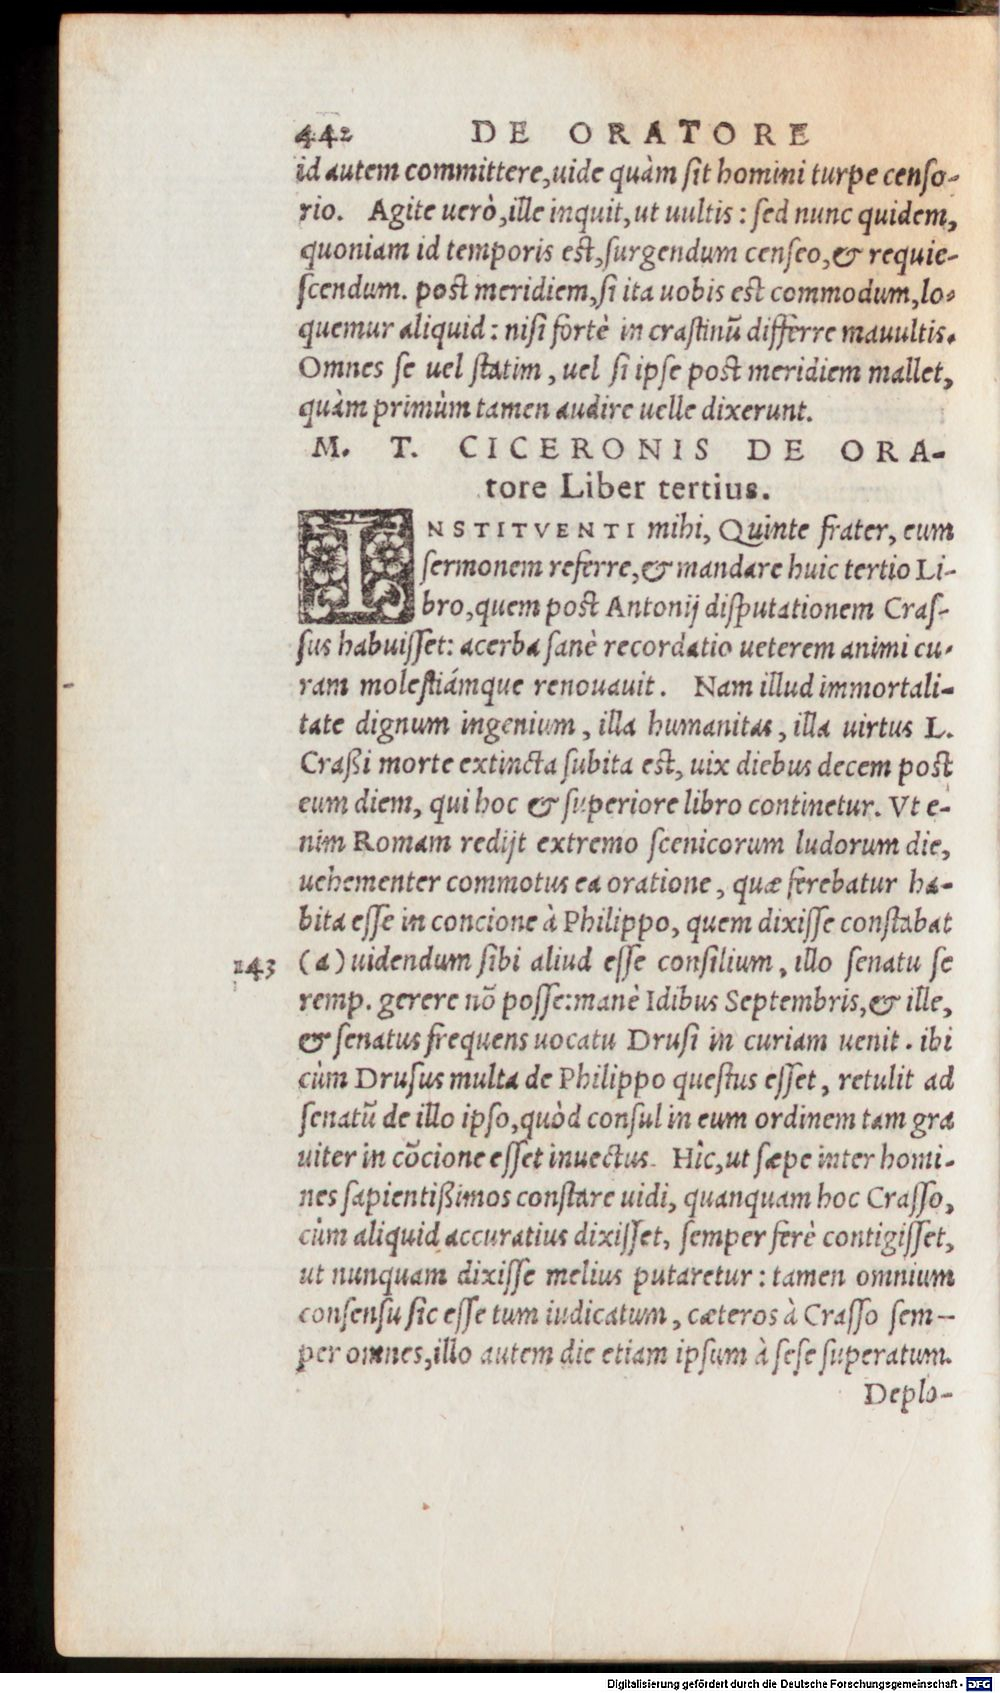 442 DE ORATORE
id autem committere,uide quàm ſit homini turpe cenſo-
rio. Agite uerò,ille inquit,ut uultis: ſed nunc quidem,
quoniam id temporis est,ſurgendum cenſeo,& requie-
ſcendum. post meridiem,ſi ita uobis est commodum,lo-
quemur aliquid: niſi fortè in craſtinū differre mauultis.
Omnes ſe uel ſtatim, uel ſi ipſe post meridiem mallet,
quàm primùm tamen audire uelle dixerunt.
M. T. CICERONIS DE ORA-
tore Liber tertius.
INSTITVENTI mihi, Quinte frater, eum
ſermonem referre,& mandare huic tertio Li-
bro,quem post Antonij diſputationem Craſ-
ſus habuiſſet: acerba ſanè recordatio ueterem animi cu-
ram moleſtiámque renouauit. Nam illud immortali-
tate dignum ingenium, illa humanitas, illa uirtus L.
Craßi morte extincta ſubita est, uix diebus decem post
eum diem, qui hoc & ſuperiore libro continetur. Vt e-
nim Romam redijt extremo ſcenicorum ludorum die,
uehementer commotus ea oratione, quæ ferebatur ha-
bita eſſe in concione à Philippo, quem dixiſſe conſtabat
143 (a) uidendum ſibi aliud eſſe conſilium, illo ſenatu ſe
remp. gerere nō poſſe:manè Idibus Septembris,& ille,
& ſenatus frequens uocatu Druſi in curiam uenit. ibi
cùm Druſus multa de Philippo queſtus eſſet, retulit ad
ſenatū de illo ipſo,quòd conſul in eum ordinem tam gra
uiter in cōcione eſſet inuectus. Hîc,ut ſæpe inter homi-
nes ſapientißimos conſtare uidi, quanquam hoc Craſſo,
cùm aliquid accuratius dixiſſet, ſemper ferè contigiſſet,
ut nunquam dixiſſe melius putaretur: tamen omnium
conſenſu ſic eſſe tum iudicatum, cæteros à Craſſo ſem-
per omnes,illo autem die etiam ipſum à ſeſe ſuperatum.
Deplo-
Digitalisierung gefördert durch die Deutsche Forschungsgemeinschaft - DFG